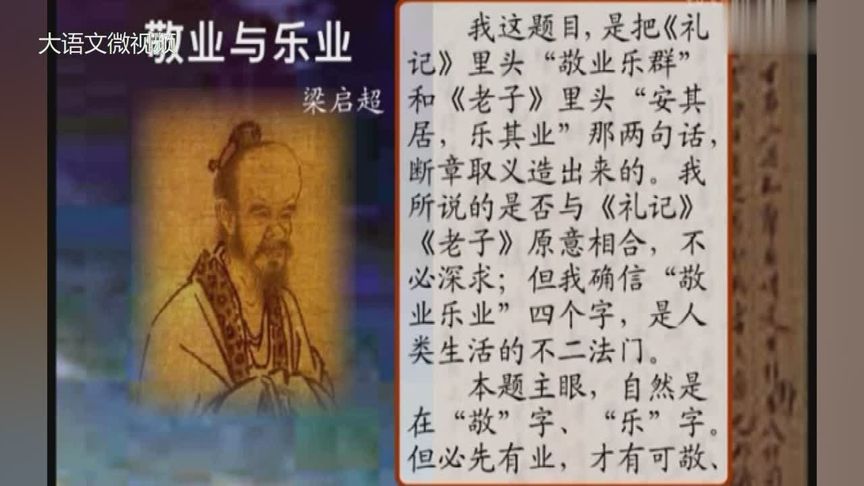 大语文微视频
敬业与乐业
梁启超
我这题目，是把《礼
记》里头“敬业乐群”
和《老子》里头“安其
居，乐其业”那两句话，
断章取义造出来的。我
所说的是否与《礼记》
《老子》原意相合，不
必深求；但我确信“敬
业乐业”四个字，是人
类生活的不二法门。
本题主眼，自然是
在“敬”字、“乐”字。
但必先有业，才有可敬、